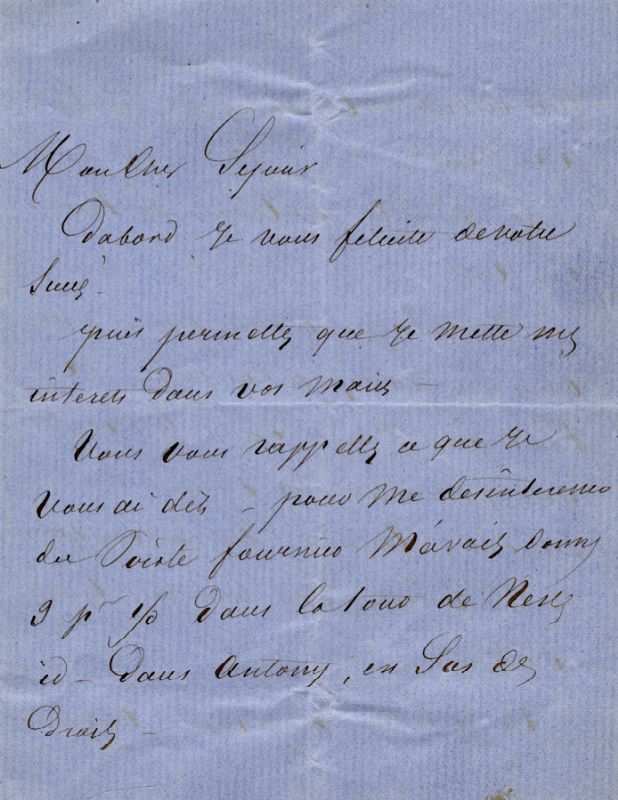 Mon Cher Sejour
Dabord Je vous felicite de votre
Succes.
puis permettez que Je mette mes
interets Dans vos Mains –
Vous vous rappelez ce que Je
Vous ai dit – pour Me desinteresser
du fournier M'avait Donné
9 pr % Dans la tour de Nesle
id – Dans Antony, en Sus des
Droits –